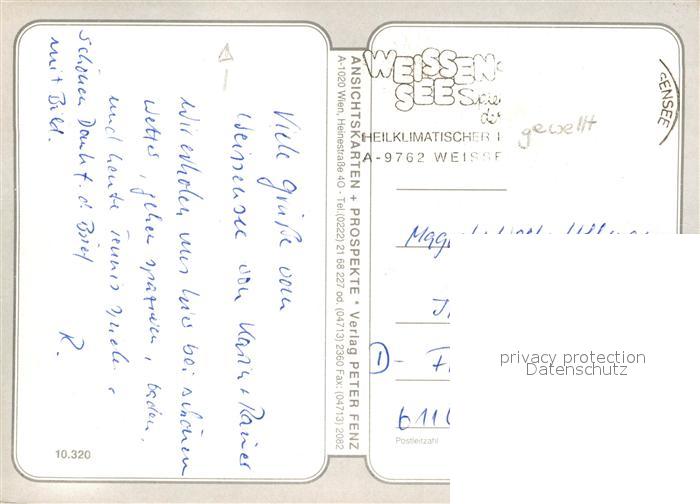 Viele Grüße vom
Weissensee von Karin + Rainer
Wir erholen uns hier bei schönem
Wetter, gehen spazieren, baden,
und heute Tennis spielen.
Schönen Dank f. d. Brief
mit Bild.
R.
10.320
ANSICHTSKARTEN + PROSPEKTE * Verlag PETER FENZ
A-1020 Wien, Heinestraße 40 - Tel. (0222) 21 68 227 od. (04713) 2360 Fax: (04713) 2082
WEISSEN
SEE
HEILKLIMATISCHER
A-9762 WEISSE
ENSEE
gewellt
1
Postleitzahl
privacy protection
Datenschutz